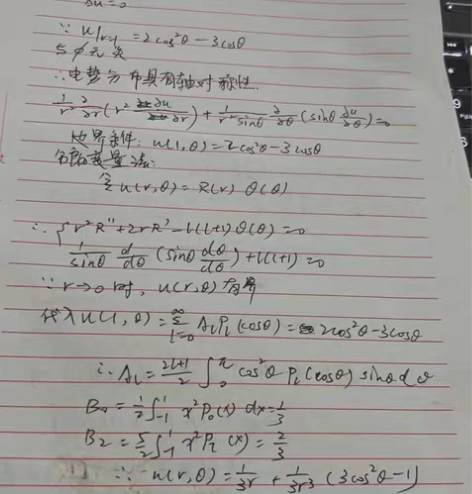 Δu=0
∵ u|r=1 =2cos²θ-3cosθ
与φ无关
∴电势分布具有轴对称性.
1/r² ∂/∂r (r² ∂u/∂r) + 1/(r² sinθ) ∂/∂θ (sinθ ∂u/∂θ)=0
边界条件: u(1,θ)=2cos²θ-3cosθ
分离变量法:
令 u(r,θ)=R(r) Θ(θ)
∴ { r²R''+2rR'-l(l+1)Θ(θ)=0
1/sinθ d/dθ (sinθ dθ/dθ)+l(l+1)=0
∵ r→0时, u(r,θ)有界
代入u(1,θ)=∑_{l=0}^{∞} A_l P_l(cosθ)=2cos²θ-3cosθ
∴ A_l=(2l+1)/2 ∫_0^π cos²θ P_l(cosθ) sinθ dθ
B_0=1/2 ∫_{-1}^{1} x²P_0(x) dx=1/3
B_2=5/2 ∫_{-1}^{1} x²P_2(x)=2/3
∴ u(r,θ)=1/(3r) + 1/(3r³) (3cos²θ-1)